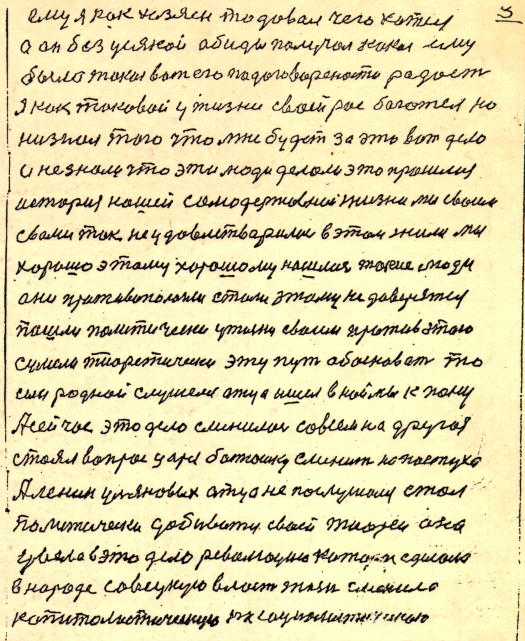 5
ему я как хозяен то довал чего хотел
а он без усякой абиды получал какая ему
была такая вот его падоговарености радост
я как таковой у жизни своей рос богател но
низнал того что мне будет за это вот дело
и незнали что эти люди делали это прошлая
история нашей самодержавной жизни ми своим
свами так неудовлитварилис в этом жили ми
хорошо этаму хорошому нашлис такие люди
ани противоположли стали этаму недаверятся
пашли политически ужизни своим против этого
сумели тиоретически эту пут абосноват то
син родной слушелся атца ишел в наймы к пану
Асейчас это дело сминилос совсем на другоя
стоял вопрос царя батюшку сминит на пастуха
Аленин ульяновых атца не послушался стал
политически дабиватся своей тиории ана
увела в это дело револющию котория сделала
в народе совецкую власт жизн сменила
капиталистическую на социалистическою